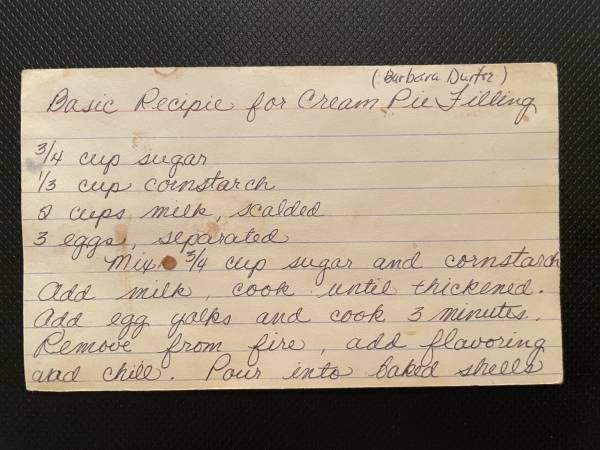 (Barbara Durfee)
Basic Recipie for Cream Pie Filling
3/4 cup sugar
1/3 cup cornstarch
2 cups milk, scalded
3 eggs, separated
Mix 3/4 cup sugar and cornstarch
Add milk, cook until thickened.
Add egg yolks and cook 3 minutes.
Remove from fire, add flavoring
and chill. Pour into baked shells